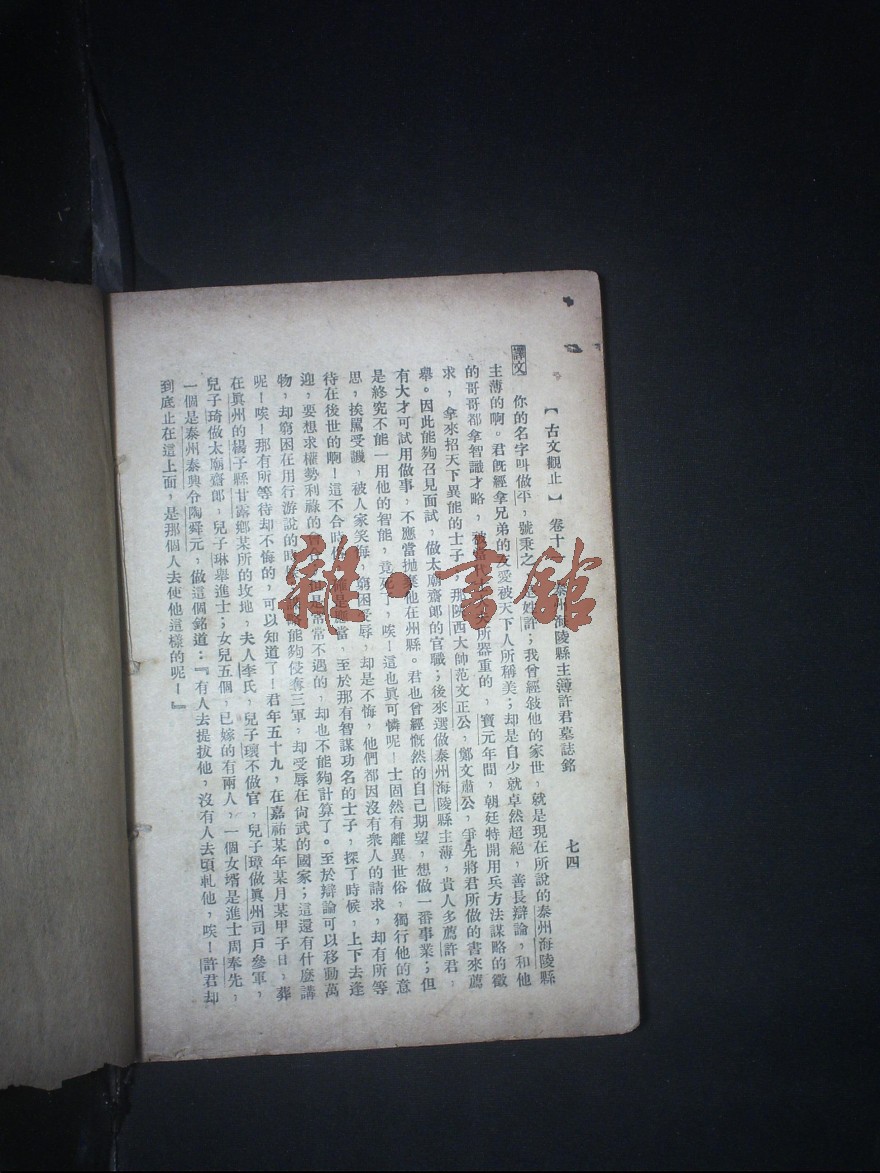 【古文觀止】 卷十 泰州海陵縣主薄許君墓誌銘 七四
譯文 你的名字叫做平，號秉之，姓許；我曾經敍他的家世，就是現在所說的泰州海陵縣
主薄的啊。君旣經拿兄弟的友愛被天下人所稱美；却是自少就卓然超絕，善長辯論，和他
的哥哥都拿智識才略，被當代大人所器重的，寶元年間，朝廷特開用兵方法謀略的徵
求，拿來招天下異能的士子，那陝西大師范文正公，鄭文肅公，爭先將君所做的書來薦
舉。因此能夠召見面試，做太廟齋郎的官職；後來選做泰州海陵縣主薄，貴人多薦許君，
有大才可試用做事，不應當拋棄他在州縣。君也曾經慨然的自己期望，想做一番事業；但
是終究不能一用他的智能，竟死了，唉！這也眞可憐呢！士固然有離異世俗，獨行他的意
思，挨罵受譏，被人家笑侮，窮困受辱，却是不悔，他們都因沒有衆人的請求，却有所等
待在後世的啊！這不合時俗，確是應當，至於那有智謀功名的士子，探了時候，上下去逢
迎，要想求權勢利祿的會合，但是常常不遇的，却也不能夠計算了。至於辯論可以移動萬
物，却窮困在用行游說的時候，謀略能夠侵奪三軍，却受辱在尙武的國家；這還有什麽講
呢！唉！那有所等待却不悔的，可以知道了！君年五十九，在嘉祐某年某月某甲子日，葬
在眞州的楊子縣甘露鄉某所的坟地，夫人李氏，兒子瓌不做官，兒子璋做眞州司戶參軍，
兒子琦做太廟齋郎，兒子琳舉進士；女兒五個，已嫁的有兩人，一個女壻是進士周奉先，
一個是泰州泰興令陶舜元，做這個銘道：『有人去提拔他，沒有人去頃軋他，唉！許君却
到底止在這上面，是那個人去使他這樣的呢！』
雜·書館